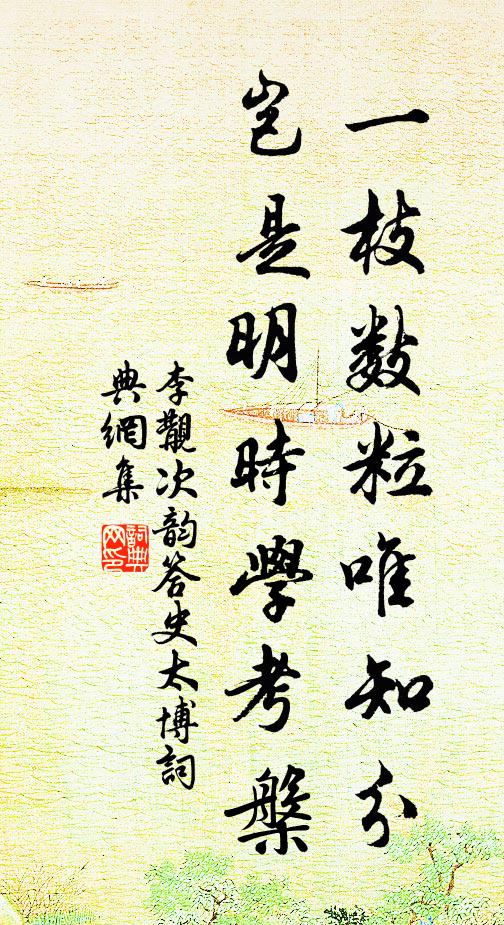 一枝數粒唯知分
豈是明時學考槃
李覯次韵答史太博詞
典網集
詞典
网印